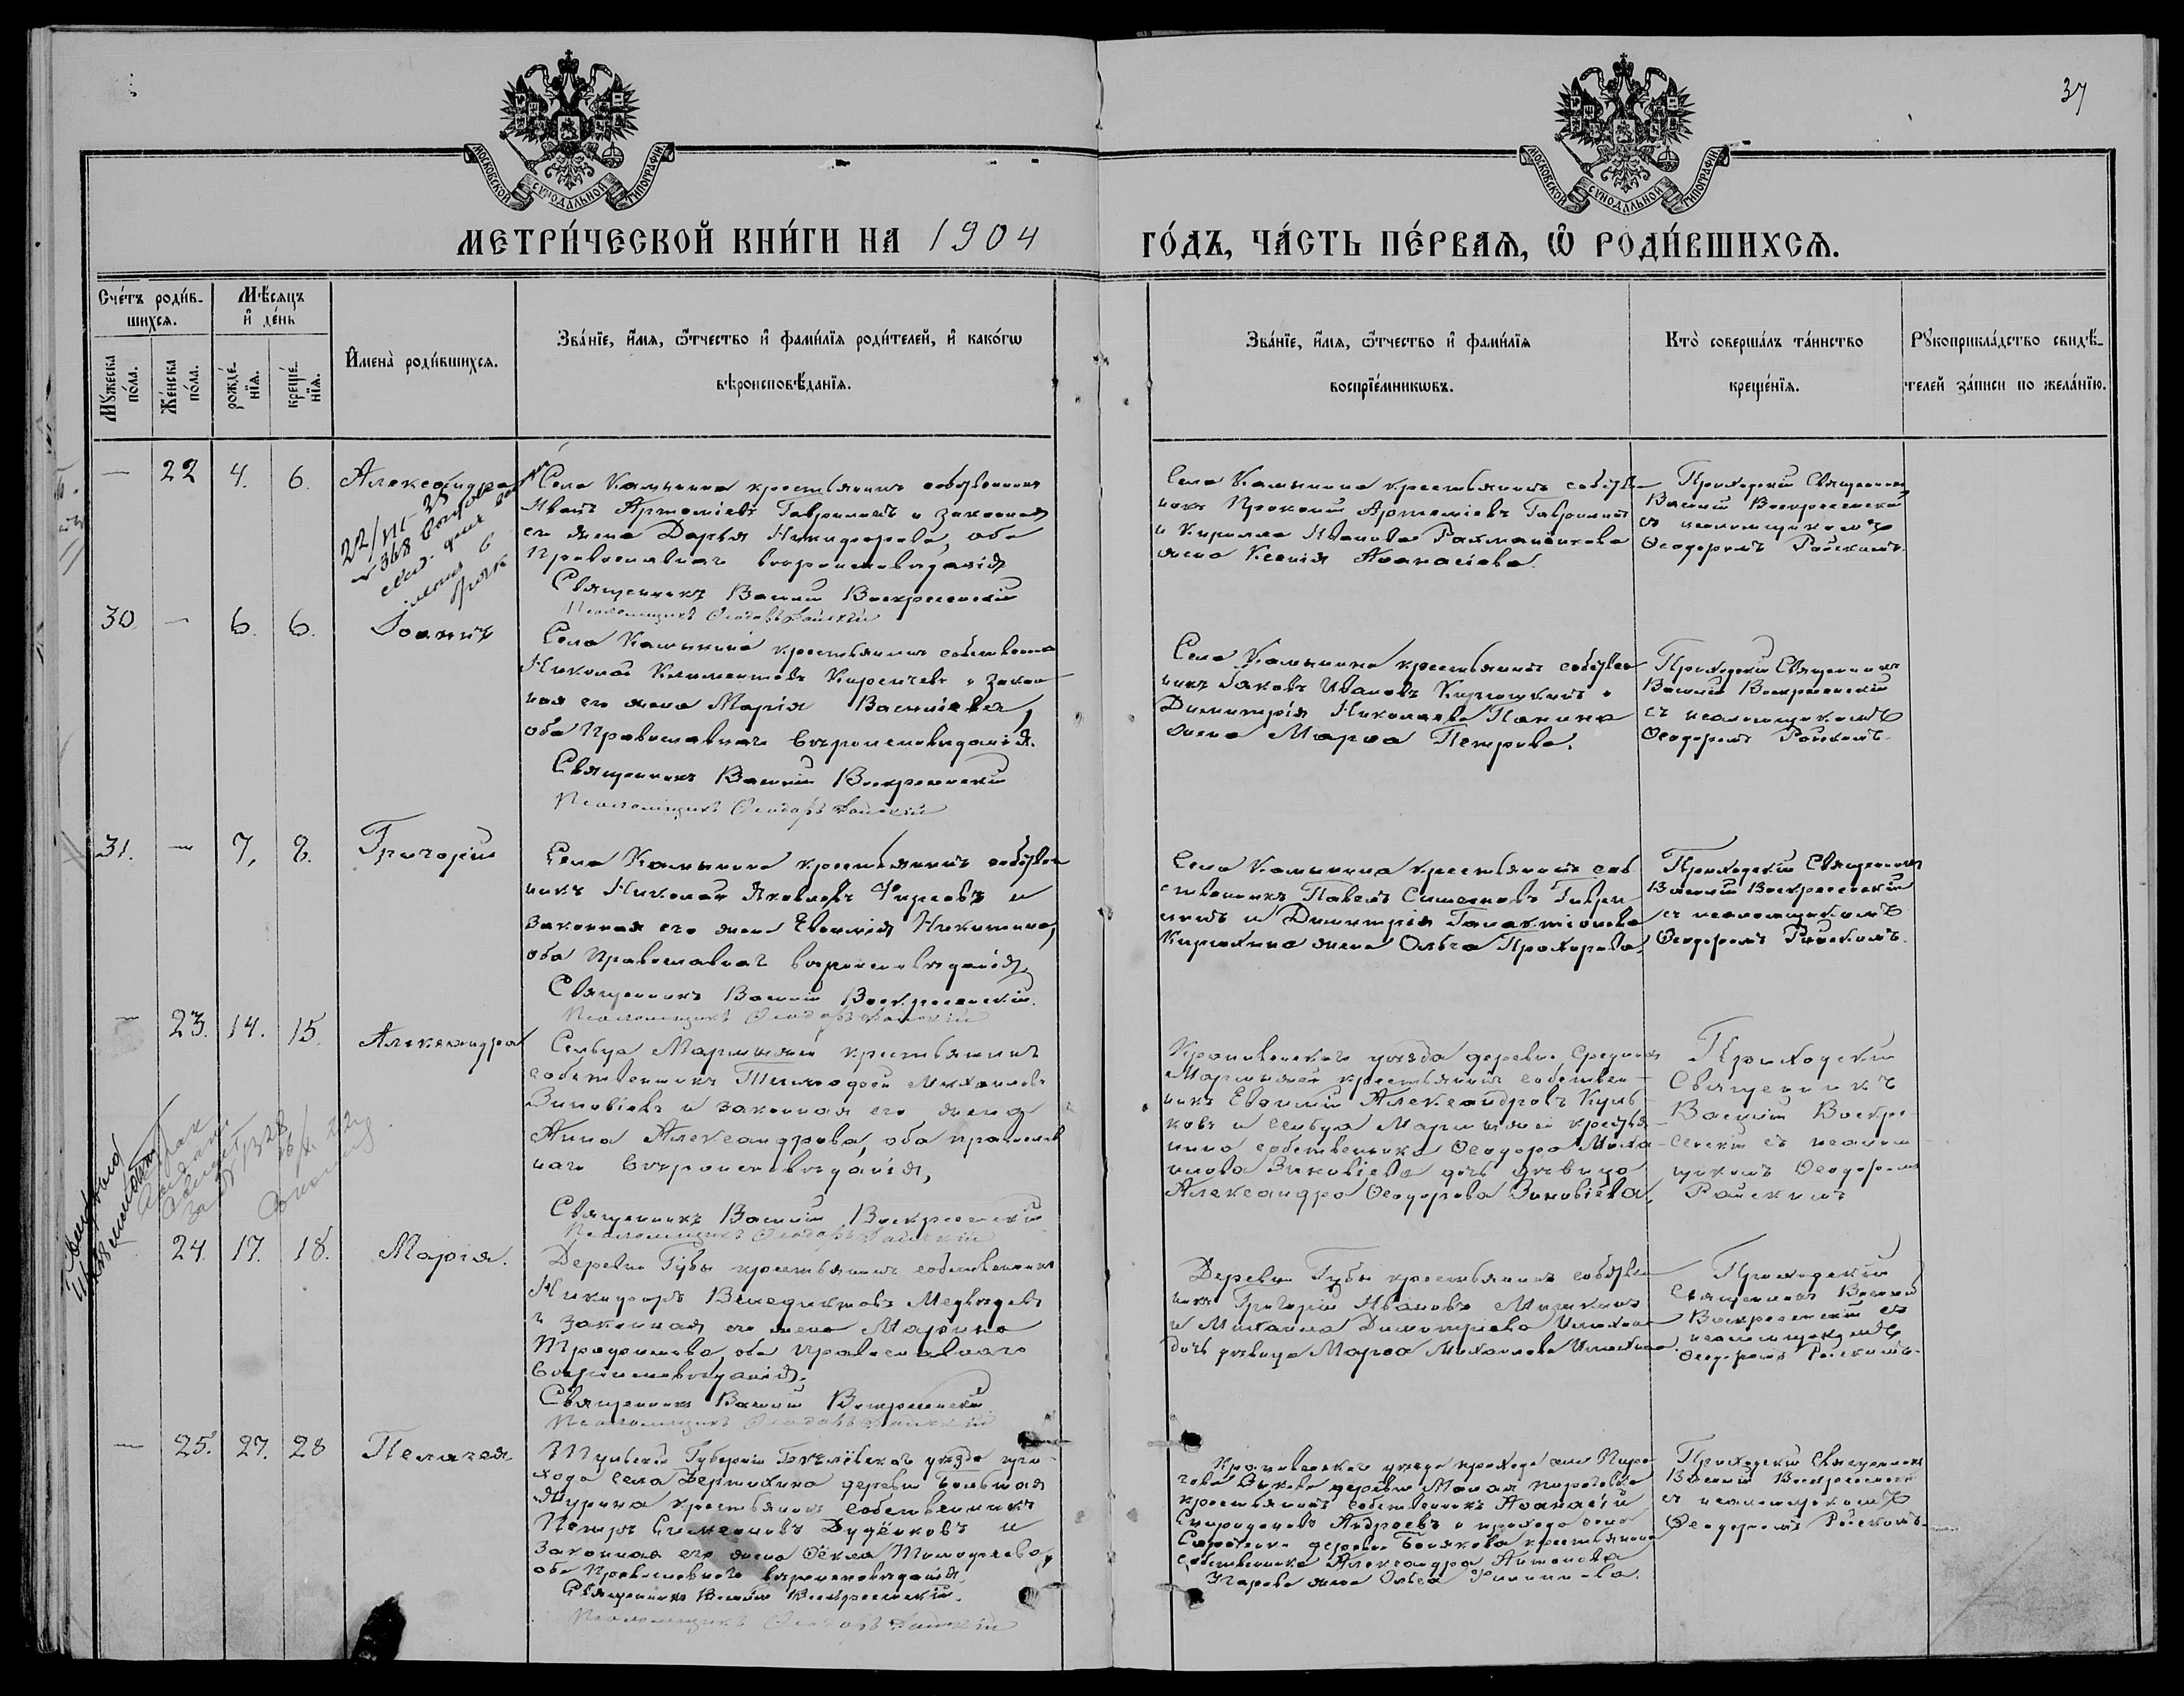 37
МОСКОВСКОЙ СѴНОДАЛЬНОЙ ТИПОГРАФІИ
МОСКОВСКОЙ СѴНОДАЛЬНОЙ ТИПОГРАФІИ
МЕТРИ́ЧЕСКОЙ КНИ́ГИ НА 1904
ГО́ДЪ, ЧА́СТЬ ПЕ́РВАѦ, Ѿ РОДИ́ВШИХСѦ.
Сче́тъ роди́в-
шихсѧ.
Мѣ́сѧцъ
и҆ де́нь
Мꙋ́жеска
по́ла.
Же́нска
по́ла.
рожде́-
нїѧ.
креще́-
нїѧ.
И҆мена̀ роди́вшихсѧ.
Зва́нїе, и҆́мѧ, ѻ҆́тчество и҆ фами́лїѧ роди́телей, и҆ како́гѡ
вѣроисповѣ́данїѧ.
Зва́нїе, и҆́мѧ, ѻ҆́тчество и҆ фами́лїѧ
воспрїе́мникѡвъ.
Кто̀ соверша́лъ та́инство
креще́нїѧ.
Рꙋкоприкла́дство свидѣ́-
телей за́писи по жела́нїю.
— 22 4. 6. Александра
Села Камынина крестьянинъ собствен
Иванъ Артемiевъ Гаврилинъ и законная
его жена Дарья Никифорова, оба
Православнаго вѣроисповѣданія
Священникъ Василій Воскресенскій
Псаломщикъ Ѳеодоръ Райскій
Села Камынина крестьянинъ собствен
никъ Прокопій Артеміевъ Гаврилинъ
и Кирилла Иванова
жена Ксенія Аѳанасіева.
Приходскій Священникъ
Василій Воскресенскій
съ псаломщикомъ
Ѳеодоромъ Райскимъ.
22/VII-25
30 — 6. 6. Іоаннъ
Села Камынина крестьянинъ собственник
Николай Климентовъ Киреичевъ и закон
ная его жена Марія Васильева,
оба Православнаго вѣроисповѣданія.
Священникъ Василій Воскресенскій
Псаломщикъ Ѳеодоръ Райскій
Села Камынина крестьянинъ собствен
никъ Іаковъ Ивановъ и
Димитрія Николаева Панина
жена Марѳа Петрова.
Приходскій Священникъ
Василій Воскресенскій
съ псаломщикомъ
Ѳеодоромъ Райскимъ.
31. — 7, 8. Григорій
Села Камынина крестьянинъ собствен
никъ Николай Яковлевъ Фирсовъ и
законная его жена Евѳимія Никитина,
оба Православнаго вѣроисповѣданія,
Священникъ Василій Воскресенскій.
Псаломщикъ Ѳеодоръ Райскій
Села Камынина крестьянинъ соб
ственникъ Павелъ Симеоновъ Гаври
линъ и Димитрія Галактіонова
Кирюхина жена Ольга Прохорова.
Приходскій Священникъ
Василій Воскресенскій
съ псаломщикомъ
Ѳеодоромъ Райскимъ.
— 23. 14. 15. Александра
Сельца Марьинки крестьянинъ
собственникъ Тимоѳей Михаиловъ
Зиновіевъ и законная его жена
Анна Александрова, оба православ
наго вѣроисповѣданія,
Священникъ Василій Воскресенскій
Псаломщикъ Ѳеодоръ Райскій
Крапивенскаго уѣзда деревни Средней
крестьянинъ собствен-
никъ Евѳимій Александровъ Кули-
ковъ и сельца крестья-
нина собственника Ѳеодора Миха-
илова Зиновіева дочь дѣвица
Александра Ѳеодорова Зиновіева,
Приходскій
Священникъ
Василій Воскре-
сенскій съ псалом-
щикомъ Ѳеодоромъ
Райскимъ
24. 17. 18. Марія.
Деревни Губы крестьянинъ собственникъ
Никифоръ Венедиктовъ Медвѣдевъ
и законная его жена Марина
Трофимова, оба Православнаго
вѣроисповѣданія.
Священникъ Василій Воскресенскій
Псаломщикъ Ѳеодоръ Райскій
Деревни Губы крестьянинъ собствен
никъ Григорій Ивановъ
и Михаила Димитріева
дочь дѣвица Марѳа Михаилова
Приходскій
Священникъ Василій
Воскресенскій съ
псаломщикомъ
Ѳеодоромъ Райскимъ.
— 25. 27. 28 Пелагея
Тульской Губерніи Бѣлёвскаго уѣзда при-
хода села деревни Большая
крестьянинъ собственникъ
Петръ Симеоновъ Дудёнковъ и
законная его жена Ѳёкла Тимоѳеева,
оба Православнаго вѣроисповѣданія.
Священникъ Василій Воскресенскій.
Псаломщикъ Ѳеодоръ Райскій
Крапивенскаго уѣзда прихода села
деревни Малая
крестьянинъ собственникъ Аѳанасій
Спиридоновъ Андреевъ и прихода села
деревни крестьянина
собственника Александра Антонова
жена Ольга Филиппова.
Приходскій Священникъ
Василій Воскресенскій
съ псаломщикомъ
Ѳеодоромъ Райскимъ.